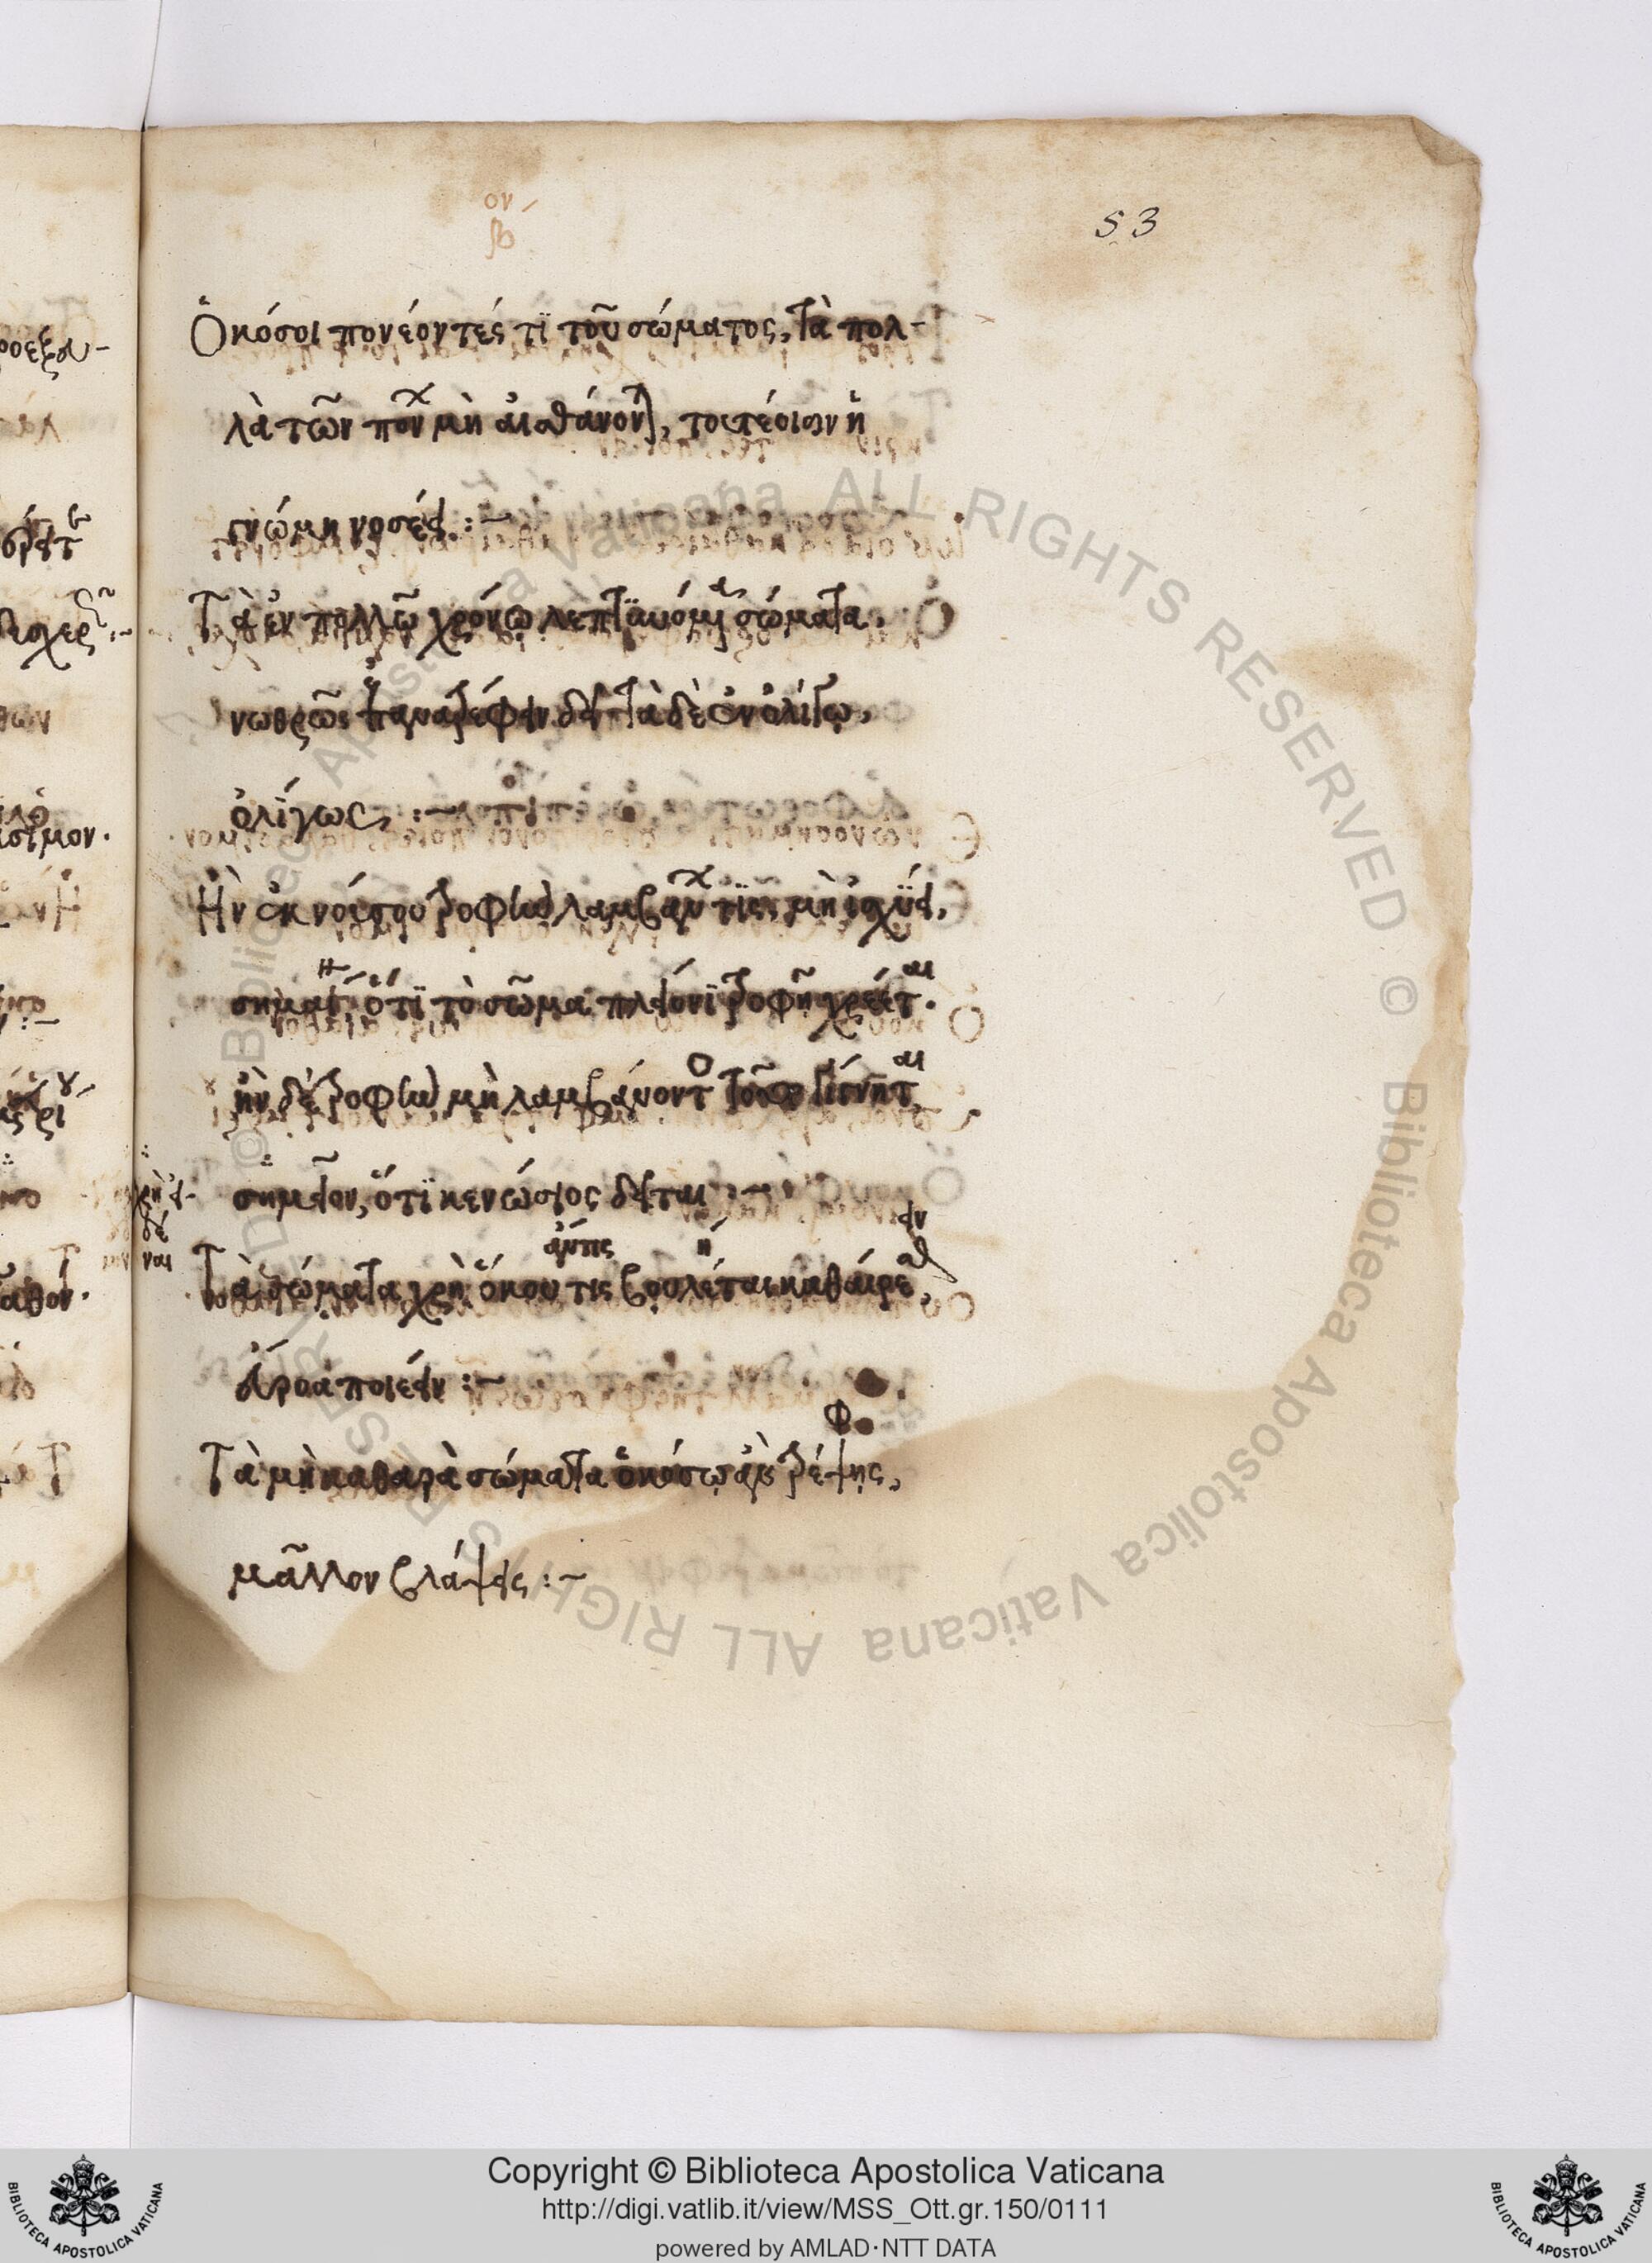 53
Ὁκόσοι πονέοντές τϊ τοῦ σώματος, τὰ πολ-
λὰ τῶν πόνων μὴ αἰσθάνονται, τουτέοισιν ἡ
γνώμη νοσέει :~
Τὰ ἐν πολλῶ χρόνω λεπτϋνόμενα σώματα,
νωθρῶς ἐπανατρέφειν δεῖ τὰ δὲ ἐν ὀλίγω,
ὀλίγως :~
Ἢν ἐκ νούσου τροφὴν λαμβάνων τϊς μὴ ἰσχϋει,
σημαίνει ὅτϊ τὸ σῶμα πλείονϊ τροφῆ χρέεται.
ἢν δὲ τροφὴν μὴ λαμβάνοντος τοῦτο γίγνηται
σημεῖον, ὅτϊ κενώσιος δεῖται :~
Τὰ σώματα χρὴ ὅκου τις βούλεται καθαίρεσθαι,
εὔροα ποιέειν :~
Τὰ μὴ καθαρὰ σώματα ὁκόσω ἂν θρέψης,
μᾶλλον βλάψεις :~
BIBLIOTECA APOSTOLICA VATICANA
Copyright © Biblioteca Apostolica Vaticana
http://digi.vatlib.it/view/MSS_Ott.gr.150/0111
powered by AMLAD·NTT DATA
BIBLIOTECA APOSTOLICA VATICANA
© Biblioteca Apostolica Vaticana ALL RIGHTS RESERVED © Biblioteca Apostolica Vaticana ALL RIGHTS RESERVED